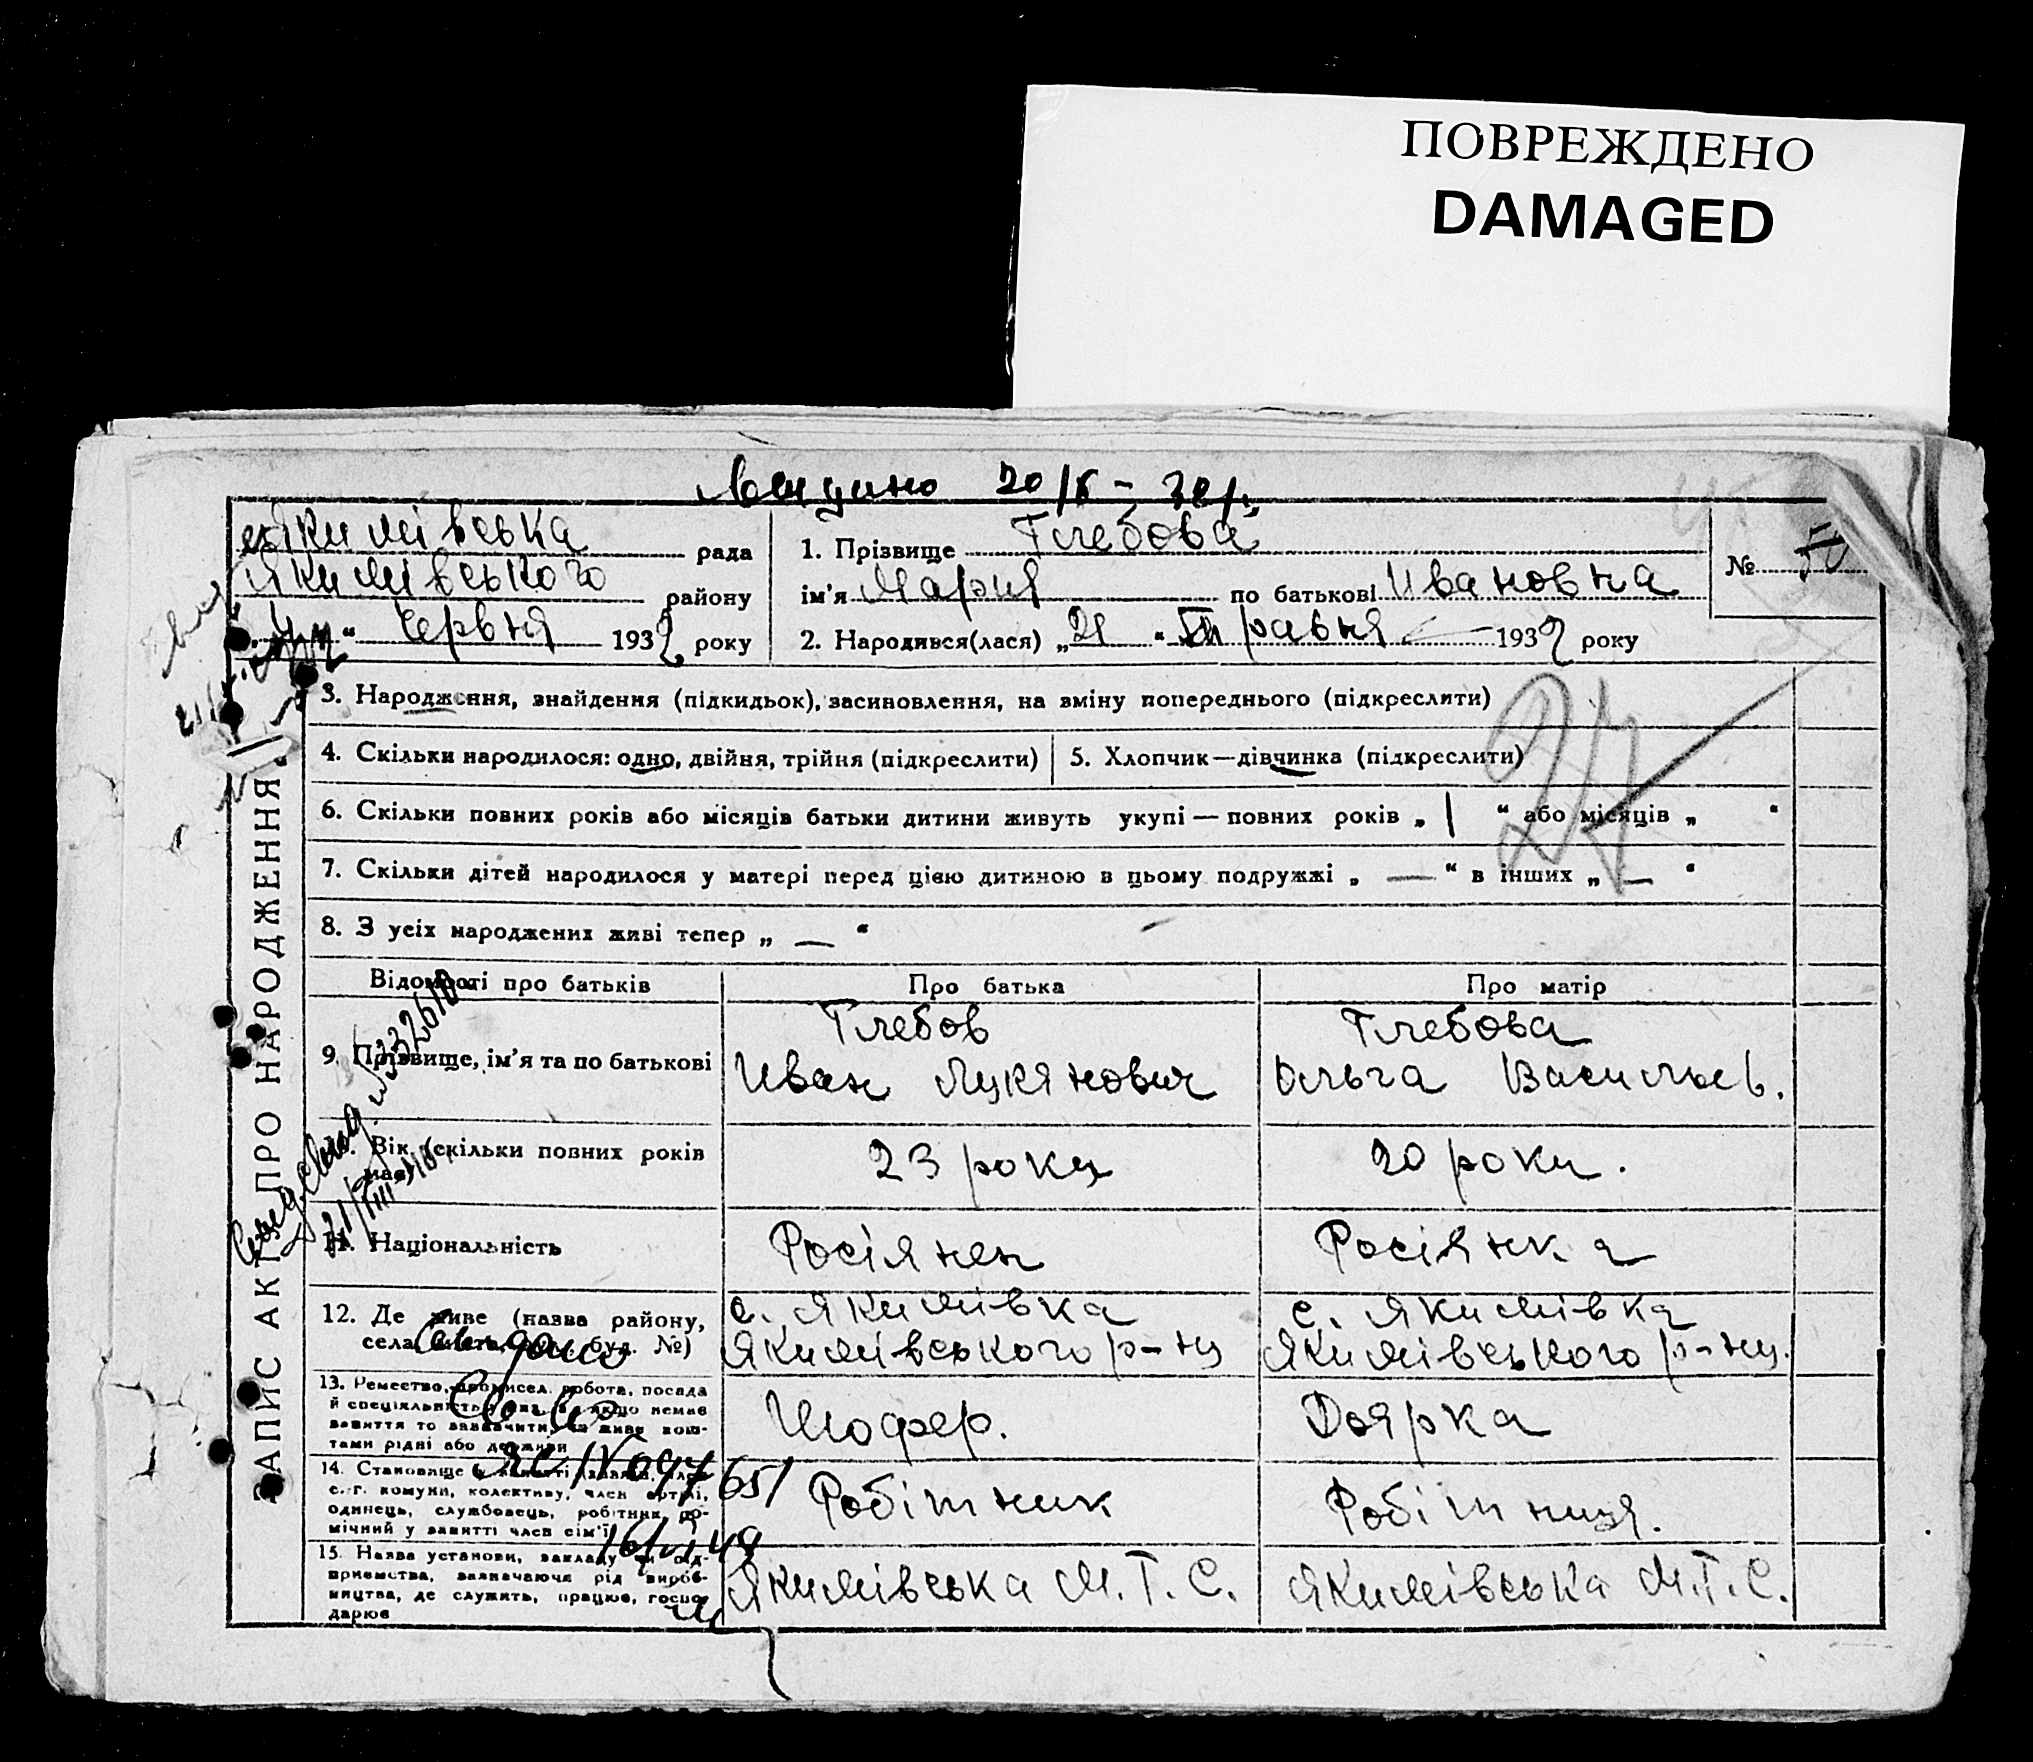 ПОВРЕЖДЕНО
DAMAGED
20/X - 32 р.
Якимівська рада
Якимівського району
" Червня 1932 року
1. Прізвище Глебова
ім'я Мария по батькові Ивановна
№
2. Народився(лася) „21 “ Травня 1932 року
3. Народження, знайдення (підкидьок), засиновлення, на зміну попереднього (підкреслити)
4. Скільки народилося: одно, двійня, трійня (підкреслити)
5. Хлопчик—дівчинка (підкреслити)
6. Скільки повних років або місяців батьки дитини живуть укупі — повних років „ 1 “ або місяців „ “
7. Скільки дітей народилося у матері перед цією дитиною в цьому подружжі „ — “ в інших „ — “
8. З усіх народжених живі тепер „ — “
27
ЗАПИС АКТ ПРО НАРОДЖЕННЯ
Відомості про батьків
Про батька
Про матір
9. Прізвище, ім'я та по батькові
Глебов
Иван Лукянович
Глебова
Ольга Васильев.
Вік (скільки повних років має)
23 роки
20 роки.
11. Національність
Росіянен
Росіянка
12. Де живе (назва району,
села, буд. №)
с. Якимівка
Якимівського р-ну
с. Якимівка
Якимівського р-ну.
13. Ремество, промисел, робота, посада
й спеціяльність якщо немає
заняття то зазначити, чи живе кош-
тами рідні або держави
Шофер.
Доярка
14. Становище в занятті
с.-г. комуни, колективу, член артілі,
одинець, службовець, робітник, по-
мічний у занятті член сім'ї
Робітник
Робітниця.
15. Назва установи, закладу чи під-
приємства, зазначаючи рід вироб-
ництва, де служить, працює, госпо-
дарює
Якимівська М.Т.С.
Якимівська М.Т.С.